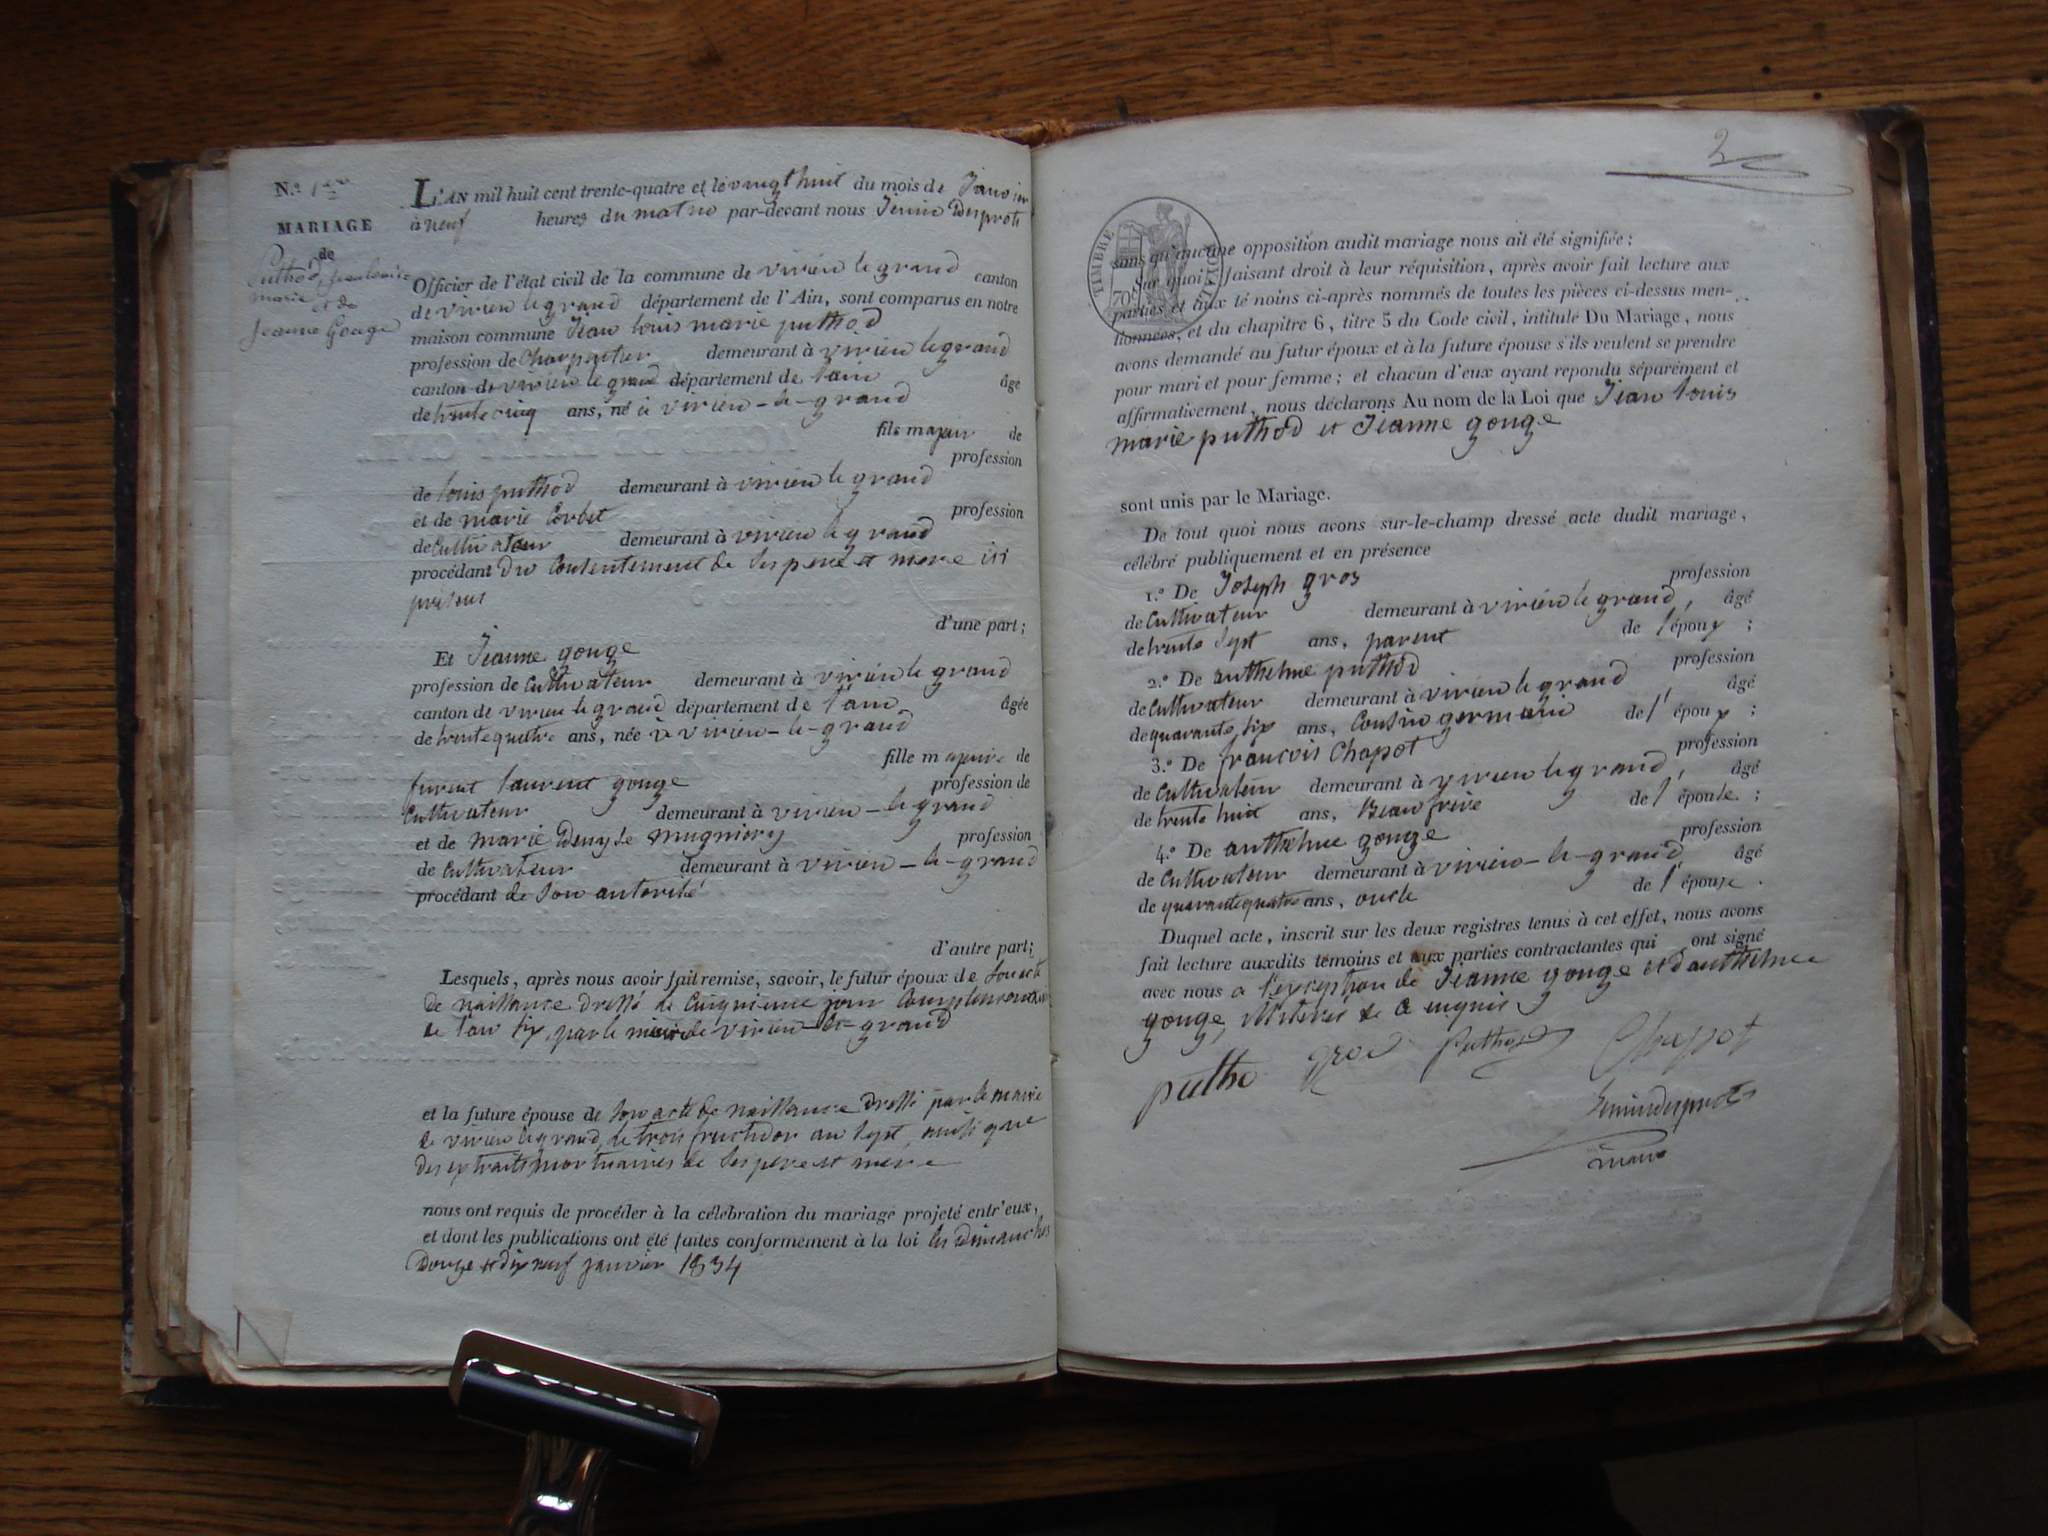 N.º 1
MARIAGE
de
Puthod, jean louis
marie
et de
Jeanne Gouge
L'AN mil huit cent trente-quatre et le vingt huit du mois de Janvier
à neuf heures du matin par-devant nous Jenin Desprots
Officier de l'état civil de la commune de virieu le grand canton
de virieu le grand département de l'Ain, sont comparus en notre
maison commune Jean louis marie puthod
profession de Charpentier demeurant à virieu le grand
canton de virieu le grand département de lain âgé
de trente cinq ans, né à virieu-le-grand
fils majeur de
profession
de louis puthod demeurant à virieu le grand
et de marie Corbet profession
de Cultivateur demeurant à virieu le grand
procédant du Consentement de ses pere et mere ici
présens
d'une part;
Et Jeanne gouge
profession de Cultivateur demeurant à virieu le grand
canton de virieu le grand département de l'ain âgée
de trente quatre ans, née à virieu-le-grand
fille majeure de
laurent gouge profession de
Cultivateur demeurant à virieu-le grand
et de marie Denyse mugniery profession
de Cultivateur demeurant à virieu-le-grand
procédant de son autorité
d'autre part;
Lesquels, après nous avoir fait remise, savoir, le futur époux de son acte
de naissance dressé le Cinquieme jour Complementaire
de l'an six, par le maire de virieu-le-grand
et la future épouse de son acte de naissance dressé par le maire
de virieu le grand, le trois fructidor an sept, ainsi que
des extraits mortuaires de ses pere et mere
nous ont requis de procéder à la célébration du mariage projeté entr'eux,
et dont les publications ont été faites conformément à la loi les Dimanches
Douze et dix neuf janvier 1834
2
TIMBRE ROYAL
70c
sans qu'aucune opposition audit mariage nous ait été signifiée;
Sur quoi, faisant droit à leur réquisition, après avoir fait lecture aux
parties et aux témoins ci-après nommés de toutes les pièces ci-dessus men-
tionnées, et du chapitre 6, titre 5 du Code civil, intitulé Du Mariage, nous
avons demandé au futur époux et à la future épouse s'ils veulent se prendre
pour mari et pour femme; et chacun d'eux ayant repondu séparément et
affirmativement, nous déclarons Au nom de la Loi que Jean louis
marie puthod et Jeanne gouge
sont unis par le Mariage.
De tout quoi nous avons sur-le-champ dressé acte dudit mariage,
célébré publiquement et en présence
1.º De Joseph gros profession
de Cultivateur demeurant à virieu le grand, âgé
de trente sept ans, parent de l'époux;
2.º De anthelme puthod profession
de Cultivateur demeurant à virieu le grand âgé
de quarante six ans, Cousin germain de l'époux;
3.º De francois Chapot profession
de Cultivateur demeurant à virieu le grand, âgé
de trente huit ans, Beau frere de l'épouse;
4.º De anthelme gouge profession
de Cultivateur demeurant à virieu-le-grand, âgé
de quarante quatre ans, oncle de l'épouse.
Duquel acte, inscrit sur les deux registres tenus à cet effet, nous avons
fait lecture auxdits témoins et aux parties contractantes qui ont signé
avec nous a l'exception de Jeanne gouge et d'anthelme
gouge, illiterés de ce enquis
putho gros Puthod Chapot
Jenin desprots
maire